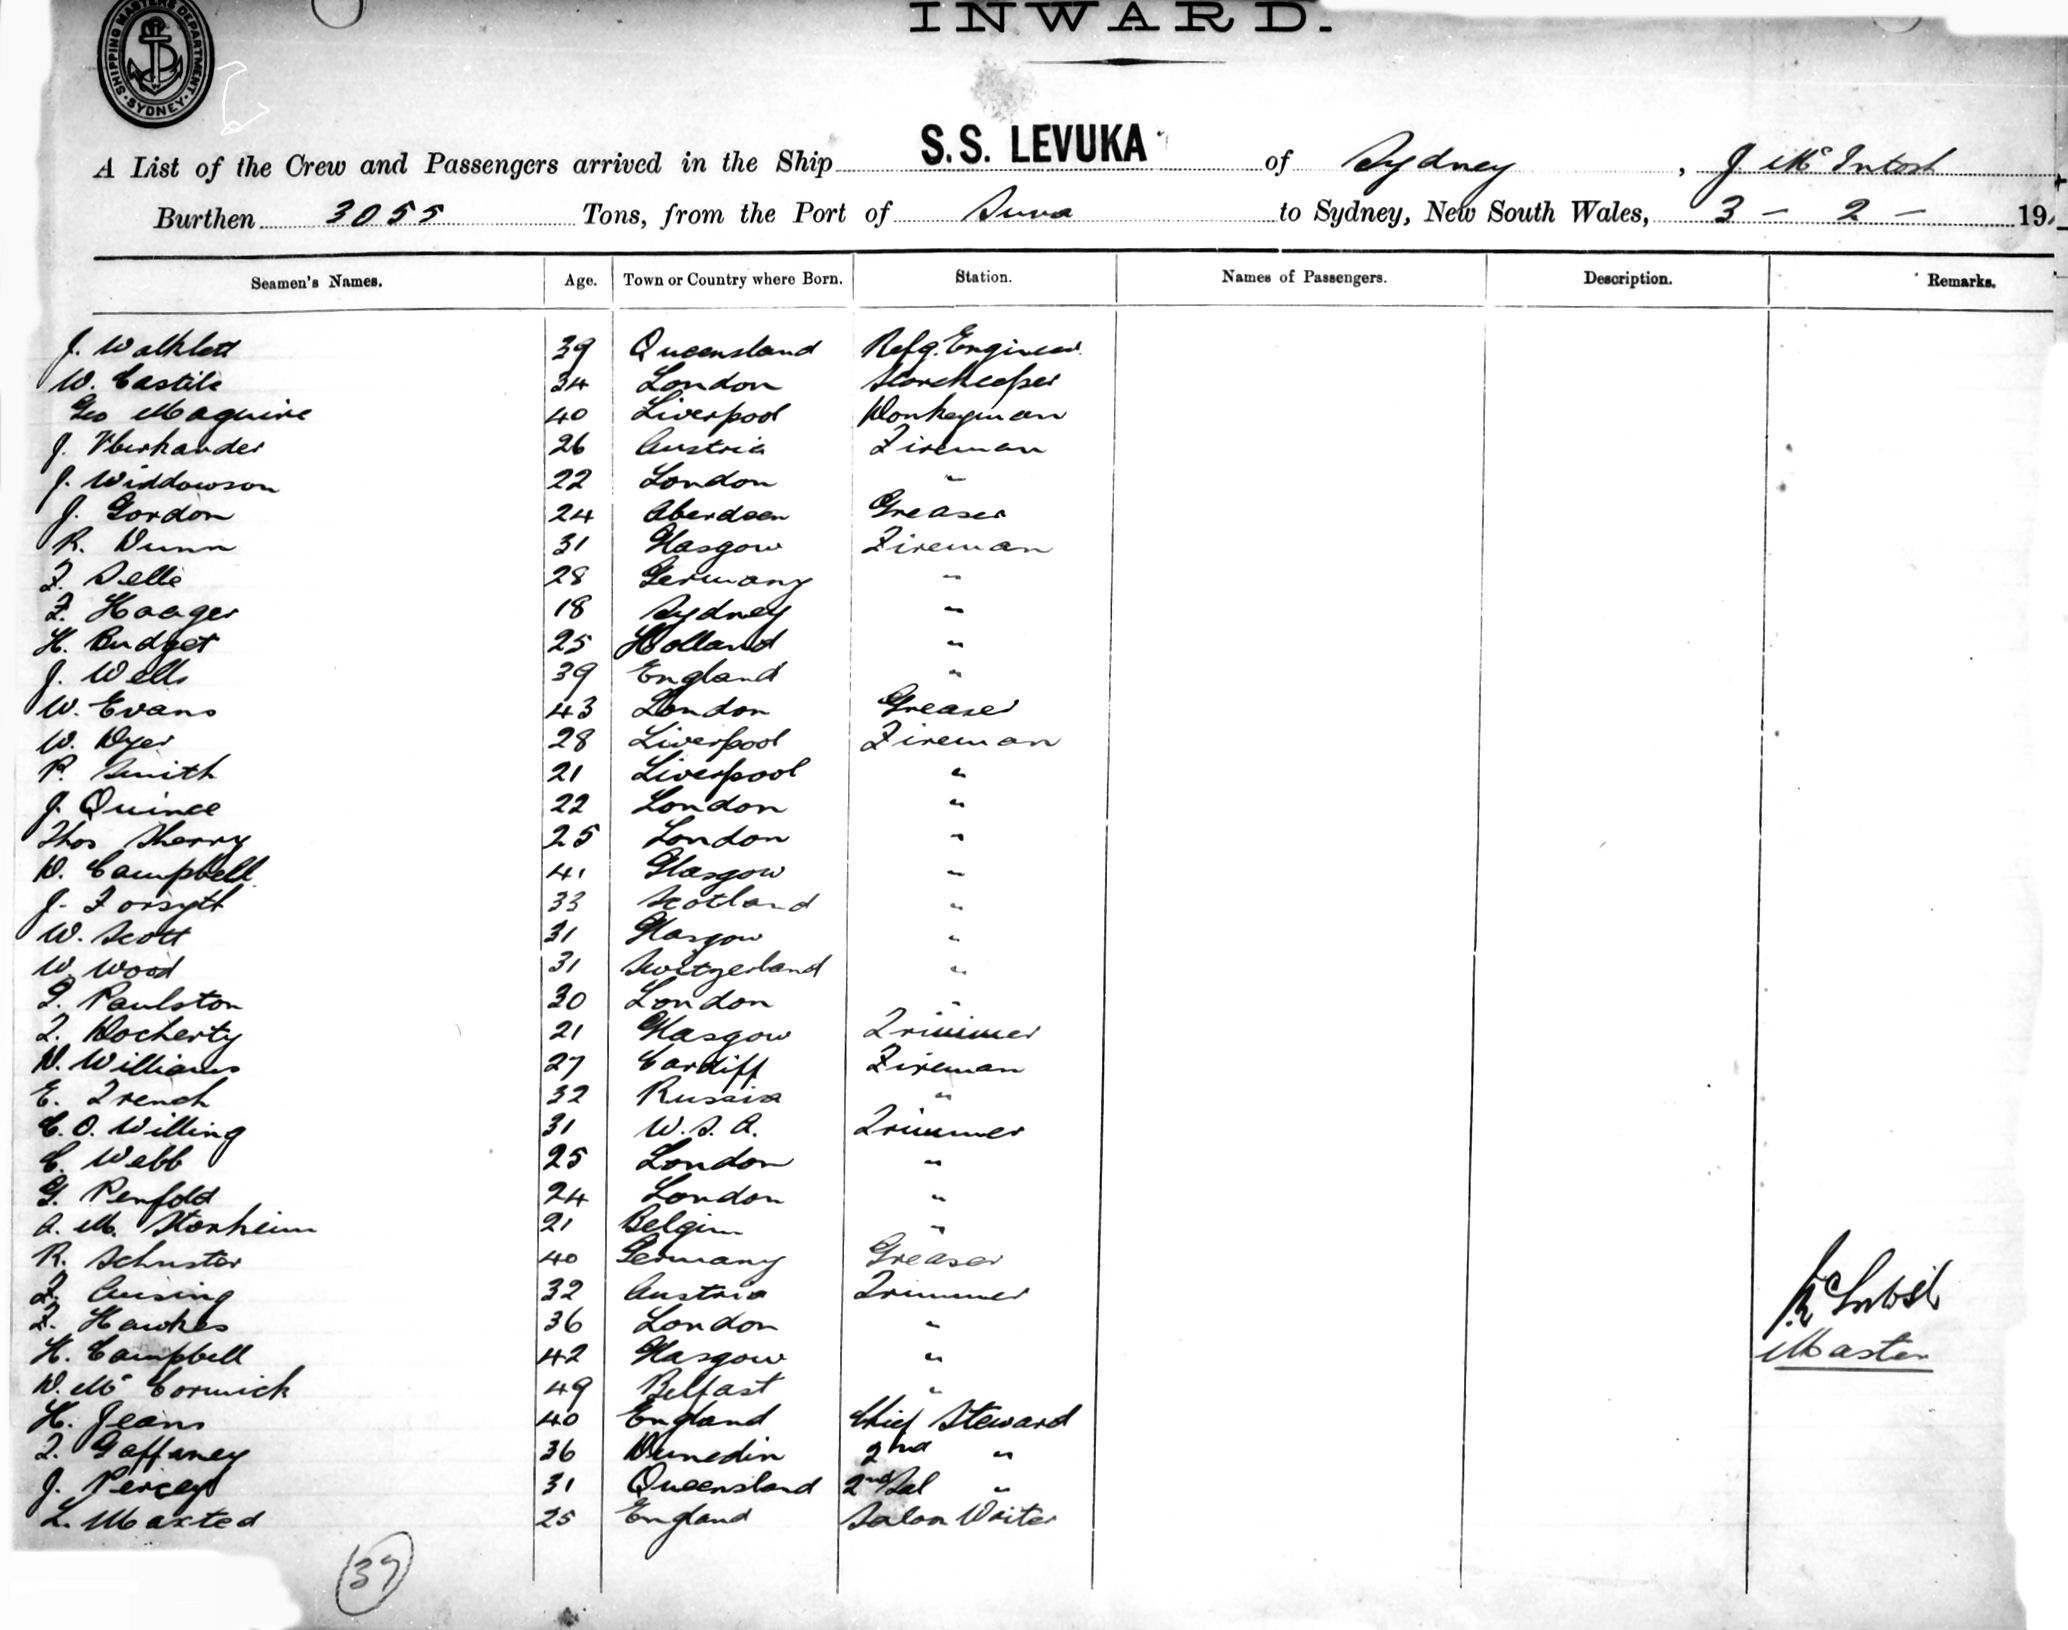 SHIPPING MASTERS DEPARTMENT
· SYDNEY ·
INWARD.
A List of the Crew and Passengers arrived in the Ship S.S. LEVUKA of Sydney, J McIntosh
Burthen 3055 Tons, from the Port of Suva to Sydney, New South Wales, 3 - 2 - 19
Seamen's Names. Age. Town or Country where Born. Station. Names of Passengers. Description. Remarks.
J. Walklett 39 Queensland Refg. Engineer
W. Castile 34 London Storekeeper
Geo Maguire 40 Liverpool Donkeyman
J. 26 Austria Fireman
J. Widdowson 22 London "
J. Gordon 24 Aberdeen Greaser
R. Dunn 31 Glasgow Fireman
F. Selle 28 Germany "
F. Haager 18 Sydney "
H. Budget 25 Holland "
J. Wells 39 England "
W. Evans 43 London Greaser
W. Dyer 28 Liverpool Fireman
P. Smith 21 Liverpool "
J. Quince 22 London "
Thos Sherry 25 London "
D. Campbell 41 Glasgow "
J. Forsyth 33 Scotland "
W. Scott 31 Glasgow "
W. Wood 31 Switzerland "
G. Paulston 30 London "
T. Docherty 21 Glasgow Trimmer
D. Williams 27 Cardiff Fireman
E. Trench 32 Russia "
C. O. Willing 31 U.S.A. Trimmer
C. Webb 25 London "
G. Penfold 24 London "
A. M. Storheim 21 Belgim "
R. Schuster 40 Germany Greaser
32 Austria Trimmer
F. Hawkes 36 London "
H. Campbell 42 Glasgow "
D. McCormick 49 Belfast "
H. Jeans 40 England Chief Steward
T. Gaffaney 36 Dunedin 2nd "
J. Percey 31 Queensland 2nd Sal "
L. Maxted 25 England Saloon Writer
J. McIntosh
Master
37